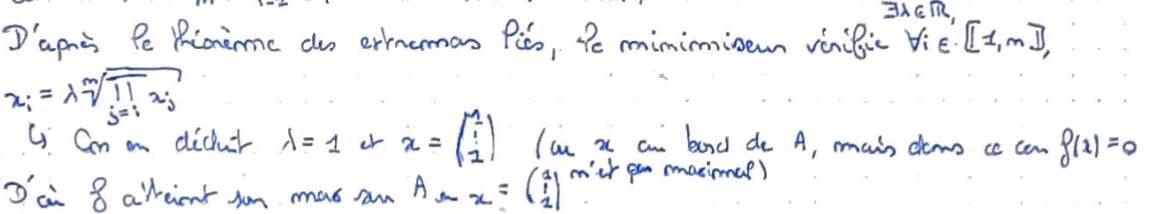 ∃λ∈ℝ,
D'après le théorème des extremas liés, le minimiseur vérifie ∀i ∈ ⟦1,n⟧,
x_i = λ \sqrt[n]{\prod_{j=i}^{n} x_j}
↳ On en déduit λ = 1 et x = (1 ⋮ 1) (ou x au bord de A, mais dans ce cas f(x)=0
n'est pas maximal)
D'où f atteint son max sur A en x = (1 ⋮ 1)